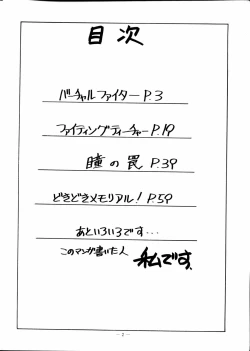 目次
バーチャルファイター P.3
ファイティングティーチャー P.19
瞳の罠 P.39
どきどきメモリアル! P.59
あといろいろです・・・
このマンガ書いた人 私です。
-2-